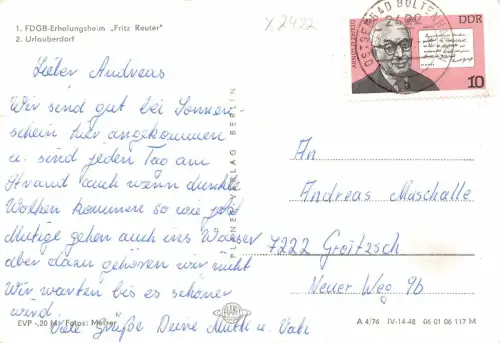 1. FDGB-Erholungsheim „Fritz Reuter"
2. Urlauberdorf
Y 2422
OSTSEEBAD BOLTENH
2422
ARNOLD ZWEIG
DDR
10
Lieber Andreas
Wir sind gut bei Sonnen-
schein hier angekommen
u. sind jeden Tag am
Strand auch wenn dunkle
Wolken kommen so wie jetzt
Mutige gehen auch ins Wasser
aber dazu gehören wir nicht
Wir warten bis es schöner
wird.
Viele Grüße Deine Mutti u. Vati
PLANET-VERLAG BERLIN
An
Andreas Maschalle
7222 Groitzsch
Neuer Weg 9b
EVP -,20 M Fotos: Melzer
A 4/76 IV-14-48 06 01 06 117 M